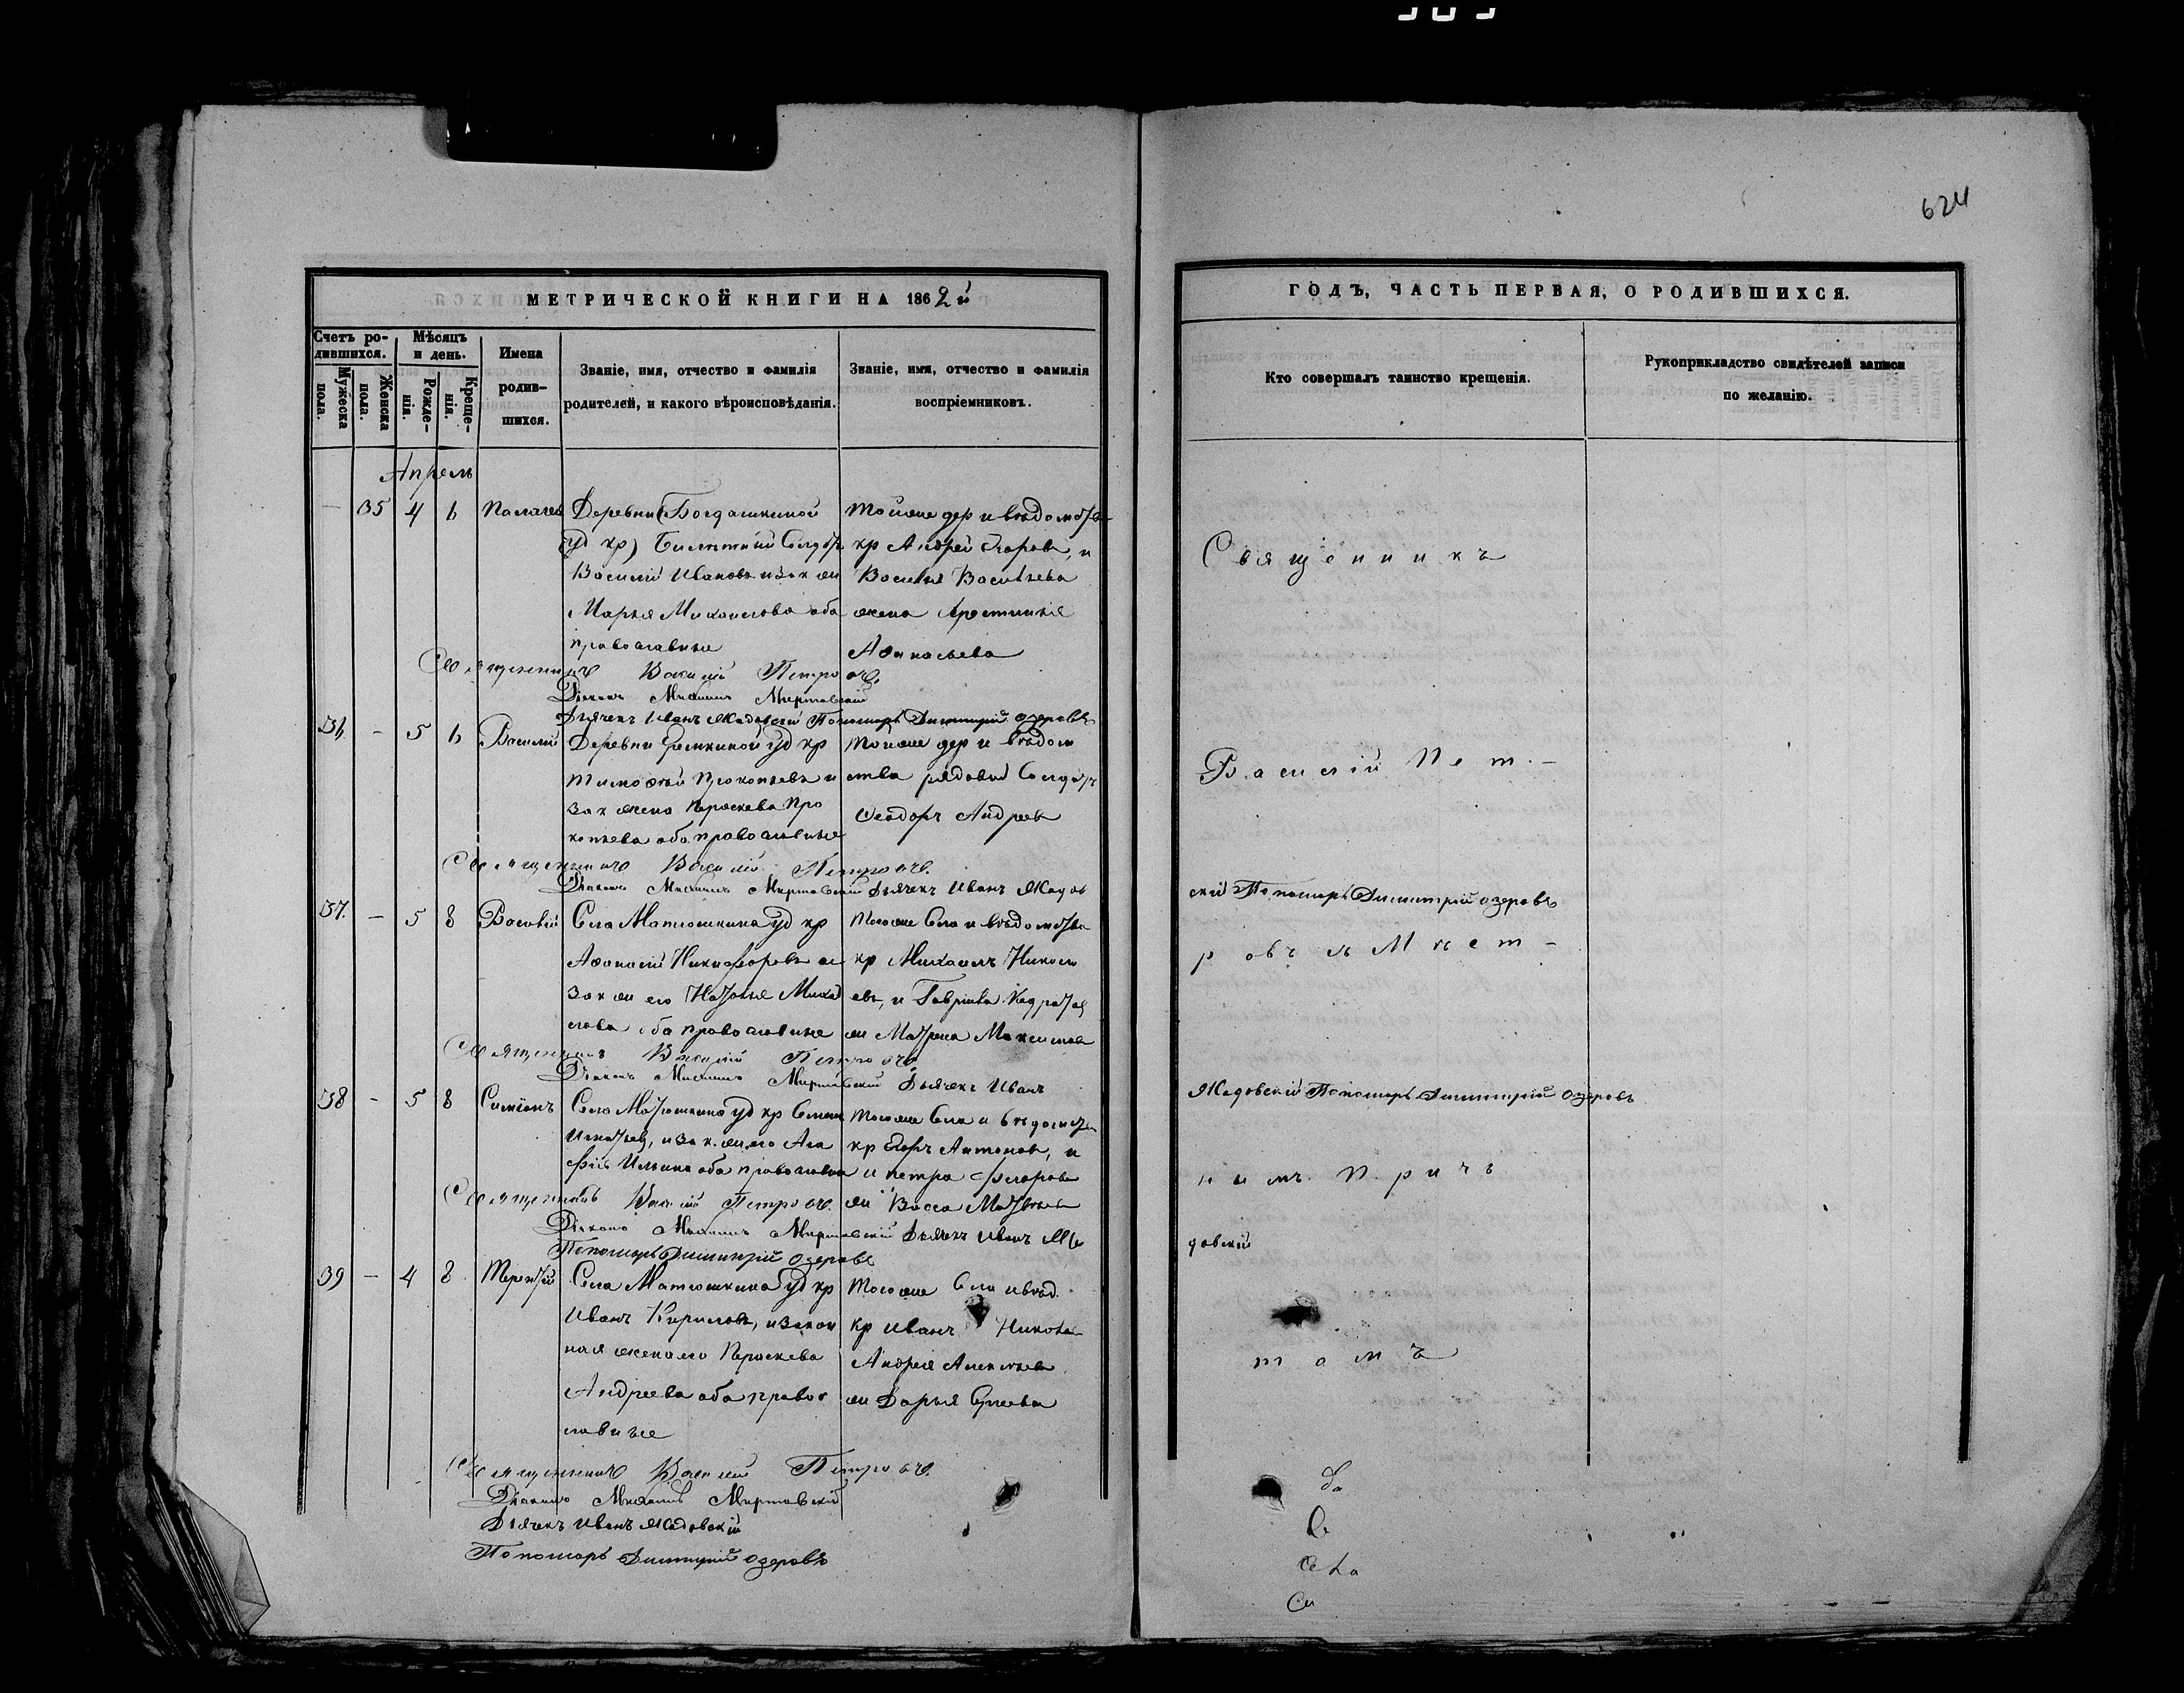 624
МЕТРИЧЕСКОЙ КНИГИ НА 1862й
ГОДЪ, ЧАСТЬ ПЕРВАЯ, О РОДИВШИХСЯ.
Счетъ родившихся.
Мужеска пола.
Женска пола.
Мѣсяцъ и день.
Рожденія.
Крещенія.
Имена родившихся.
Званіе, имя, отчество и фамилія
родителей, и какого вѣроисповѣданія.
Званіе, имя, отчество и фамилія
воспріемниковъ.
Кто совершалъ таинство крещенія.
Рукоприкладство свидѣтелей записи
по желанію.
Апрель
35 4 6
Деревни Богдашкиной
уд кр) Билетный Солдат
Василий Ивановъ и зак жи
Марья Михаилова оба
православные
Тойже дер и вѣдомства
кр Андрей Егоровъ, и
Василья Васильева
жена
Афанасьева
Священникъ Василій Петровъ.
Діаконъ Михаилъ Миртовскій
Дьячекъ Иванъ Жадовскій Пономарь Димитрій Озеровъ
36 - 5 6 Василий
Деревни уд кр
Тимофей Прокопьевъ и
зак жена Параскева Про
копьева оба православные
Тойже дер и вѣдом
ства рядовой Солдат
Феодоръ Андреев
Священникъ Василій Петровъ.
Діаконъ Михаилъ Миртовскій Дьячекъ Иванъ Жадов
скій Пономарь Димитрій Озеровъ
37. - 5 8 Василій
Села Матюшкина уд кр
Афанасій Никифоровъ и
зак жи его Наталья Михаи
лова оба православные
Тогоже Села и вѣдомства
кр Михаилъ Никола
евъ, и Гавріила
жи Матрена Максимова
Священникъ Василій Петровъ
Діаконъ Михаилъ Миртовскій Дьячекъ Иванъ
Жадовскій Пономарь Димитрій Озеровъ
38 - 5 8 Симіонъ
Села Матюшкина уд кр Семен
Игнатьев, и зак. жи. его Ага
фія Ильина оба православные
Тогоже Села и вѣдомства
кр Егоръ Антонов, и
и петра Федорова
жи Васса Матвѣева
Священникъ Василій Петровъ.
Діаконъ Михаилъ Миртовскій Дьячекъ Иванъ Жа
довскій
Пономарь Димитрій Озеровъ
39 - 4 8 Терентій
Села Матюшкина уд кр
Иванъ Кириловъ, и закон
ная жена его Параскева
Андреева оба правос
лавные
Тогоже Села и вѣд.
кр Иванъ Никола
Андрея Алексѣева
жи Дарья Сергеева
Священникъ Василій Петровъ.
Діаконъ Михаилъ Миртовскій
Дьячекъ Иванъ Жадовскій
Пономарь Димитрій Озеровъ
Священникъ
Василій Пет-
ровъ съ Мѣст-
нымъ Прич
томъ